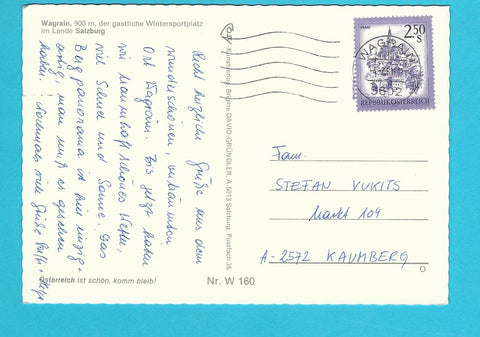 Wagrain, 900 m, der gastliche Wintersportplatz
im Lande Salzburg
Recht herzliche Grüße aus dem
wunderschönen,
Ort Wagrain. Bis jetzt haben
wir traumhaft schönes Wetter,
viel Schnee und Sonne. Das
Bergpanorama ist hier einzig-
artig, man muß es gesehen
haben! Nochmals viele Grüße
Österreich ist schön, komm bleib!
Nr. W 160
Kunstverlag Brigitte DAVID-GRÜNDLER, A 5013 Salzburg, Postfach 35
2.50
S
REPUBLIK ÖSTERREICH
WAGRAIN
5602
Fam.
STEFAN VUKITS
Markt 104
A-2572 KAUMBERG